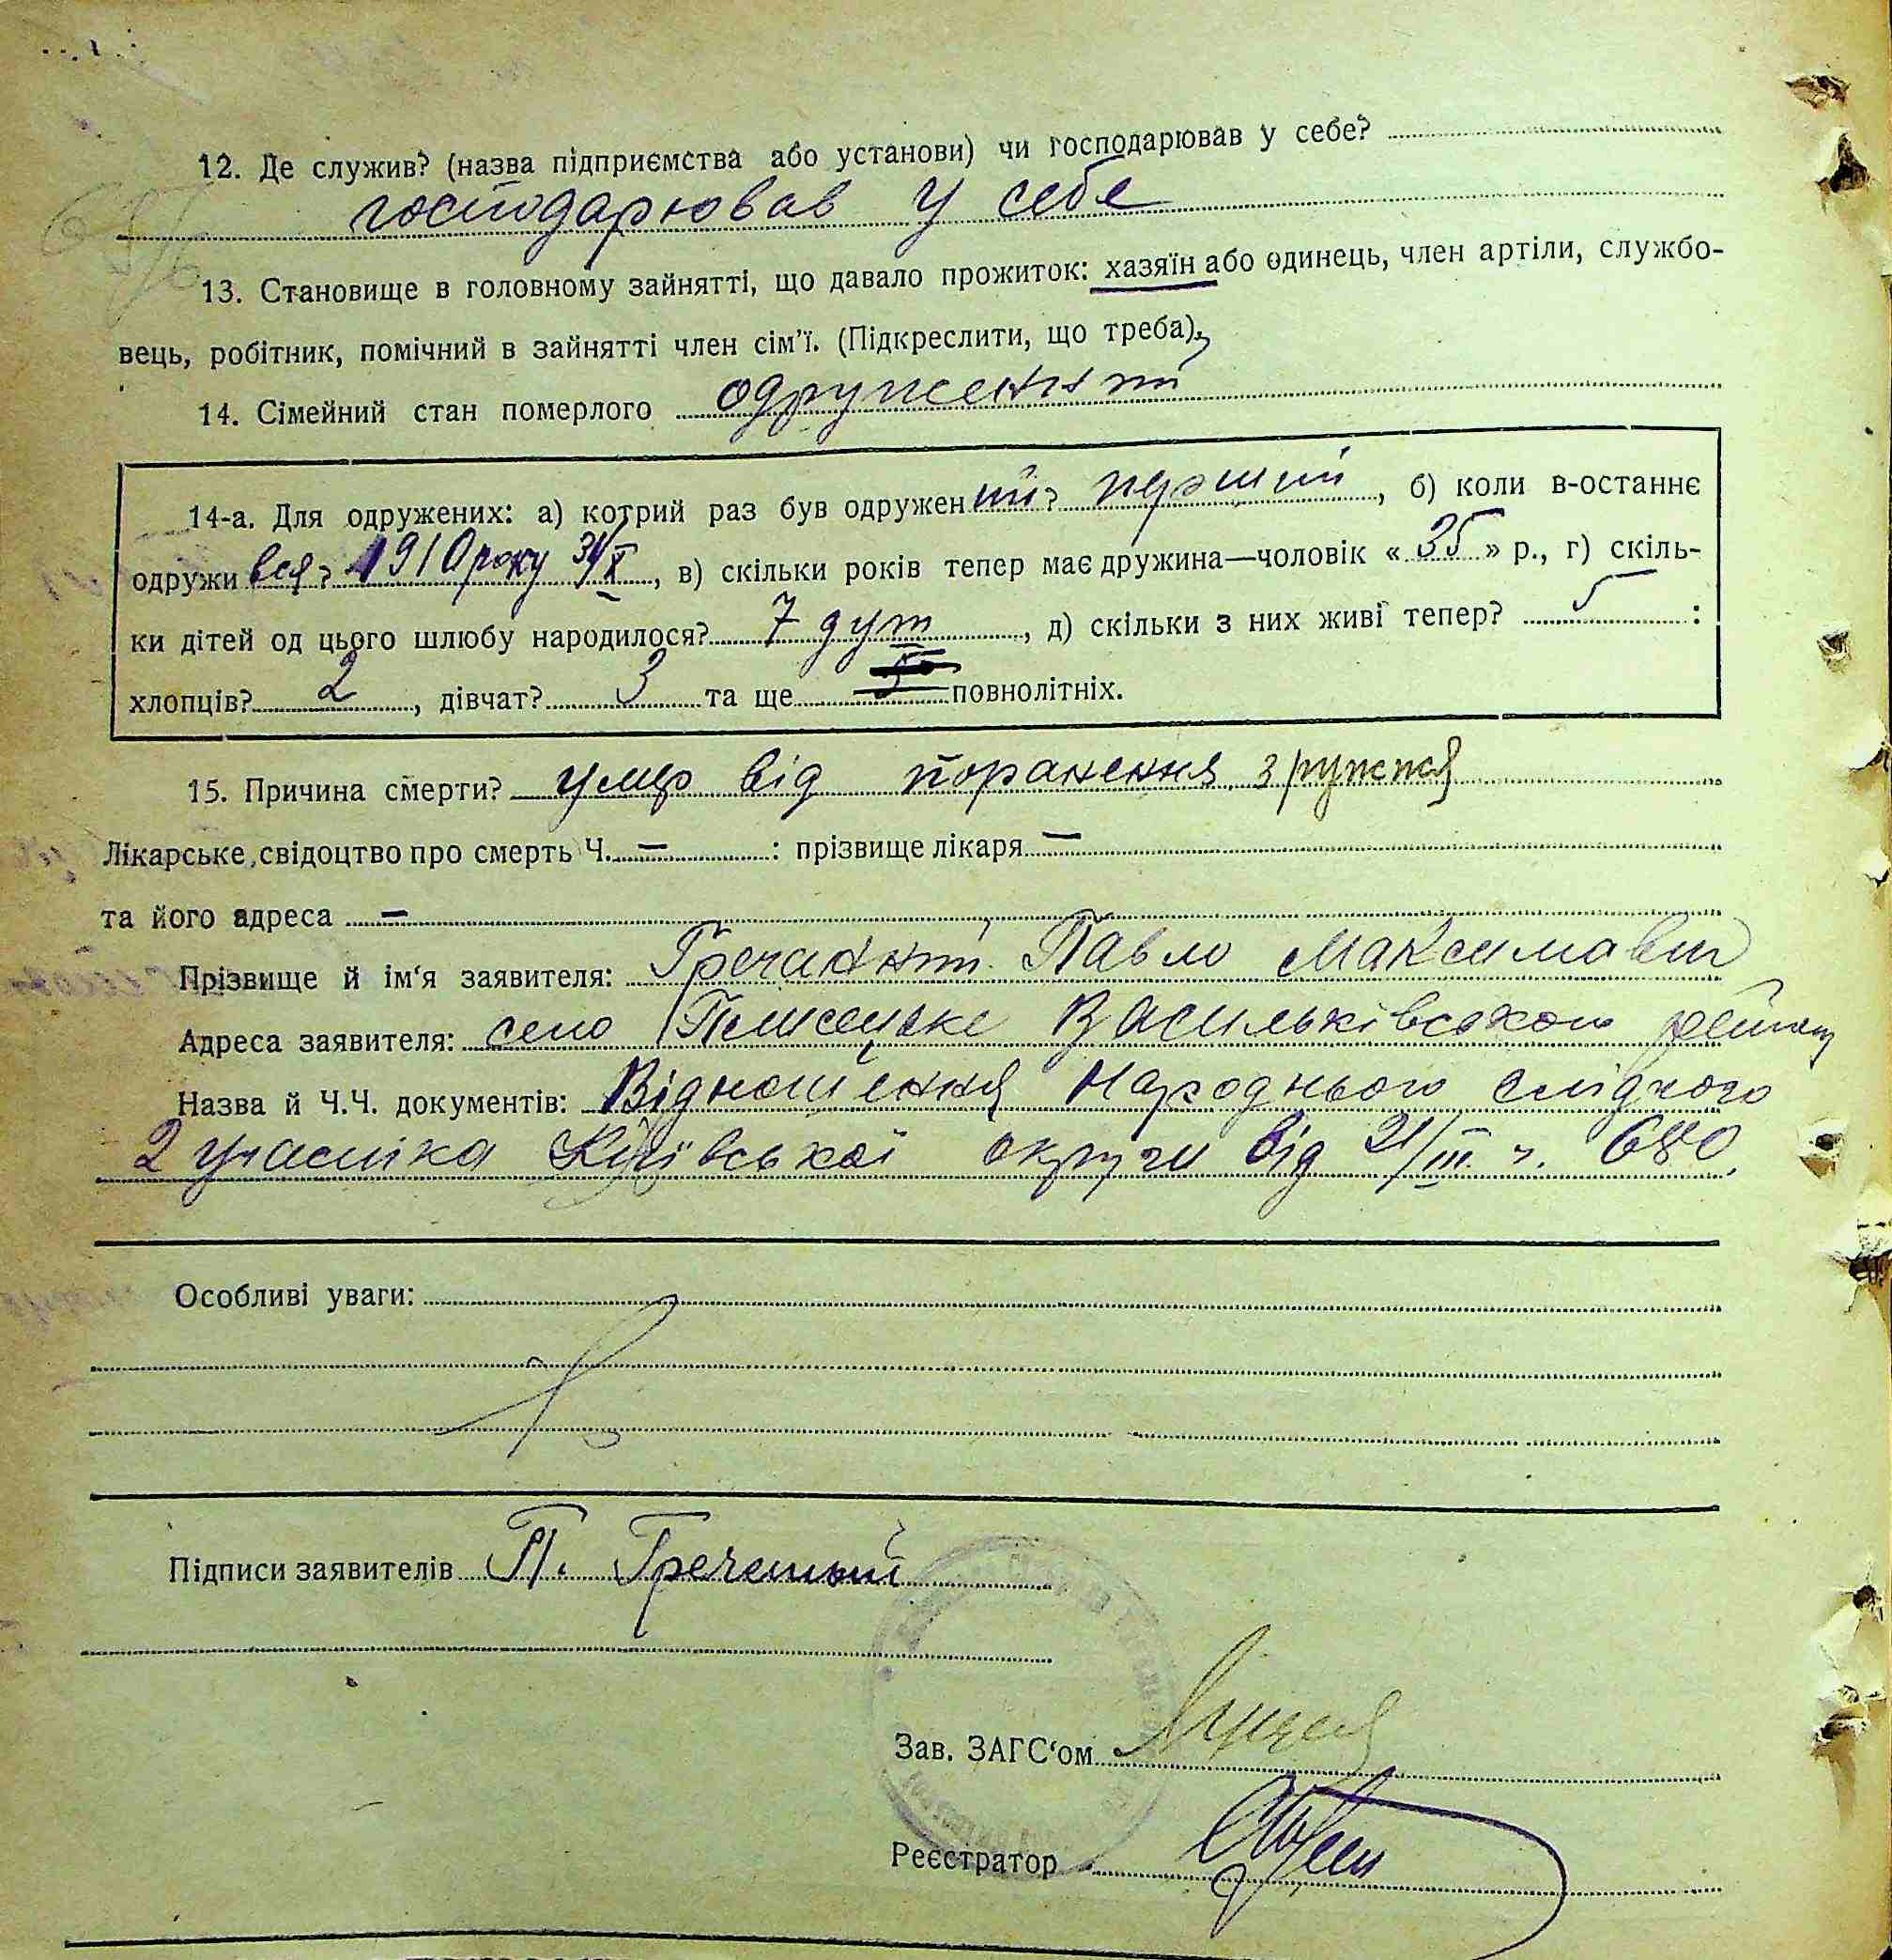 12. Де служив? (назва підприємства або установи) чи господарював у себе?
господарював у себе
13. Становище в головному зайнятті, що давало прожиток: хазяїн або одинець, член артіли, службо-
вець, робітник, помічний в зайнятті член сім'ї. (Підкреслити, що треба).
14. Сімейний стан померлого одружений
14-а. Для одружених: а) котрий раз був одружений? перший, б) коли в-останнє
одружився? 1910 року 31/X, в) скільки років тепер має дружина—чоловік « 35 » р., г) скіль-
ки дітей од цього шлюбу народилося? 7 душ, д) скільки з них живі тепер? 5 :
хлопців? 2, дівчат? 3 та ще повнолітніх.
15. Причина смерти? умер від поранення з ружжя
Лікарське свідоцтво про смерть Ч. — : прізвище лікаря —
та його адреса —
Прізвище й ім'я заявителя: Гречаний Павло Максимавич
Адреса заявителя: село Плисецьке Васильківського району
Назва й Ч.Ч. документів: Відношення Народнього слідчого
2 участка Київської округи від 21/III ч. 680.
Особливі уваги:
Підписи заявителів П. Гречетый
Зав. ЗАГС'ом
Реєстратор